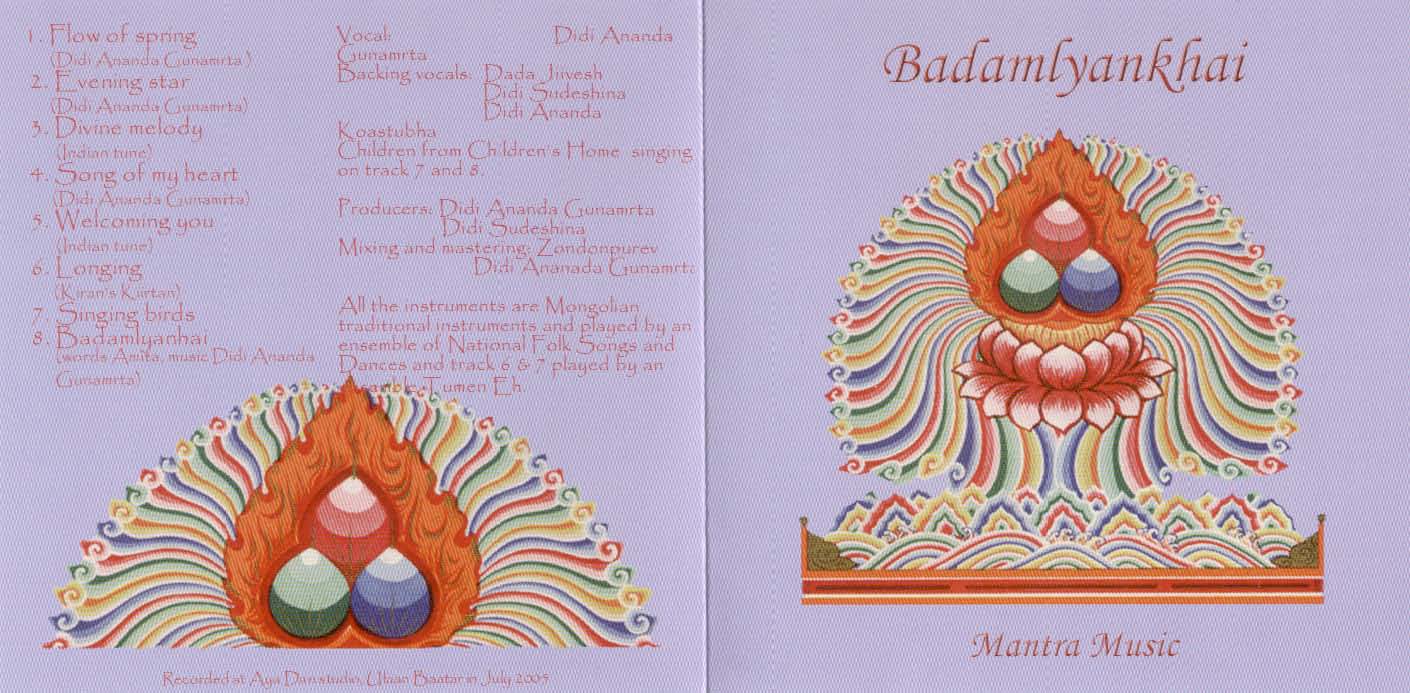 1. Flow of spring
(Didi Ananda Gunamrta )
2. Evening star
(Didi Ananda Gunamrta)
3. Divine melody
(Indian tune)
4. Song of my heart
(Didi Ananda Gunamrta)
5. Welcoming you
(Indian tune)
6. Longing
(Kiran's Kiirtan)
7. Singing birds
8. Badamlyanhai
(words Amita, music Didi Ananda
Gunamrta)
Vocal: Didi Ananda
Gunamrta
Backing vocals: Dada Jiivesh
Didi Sudeshina
Didi Ananda
Koastubha
Children from Children's Home singing
on track 7 and 8.
Producers: Didi Ananda Gunamrta
Didi Sudeshina
Mixing and mastering: Zondonpurev
Didi Ananada Gunamrta
All the instruments are Mongolian
traditional instruments and played by an
ensemble of National Folk Songs and
Dances and track 6 & 7 played by an
Tumen Eh.
Recorded at Aya Dan studio, Ulaan Baatar in July 2005
Badamlyankhai
Mantra Music